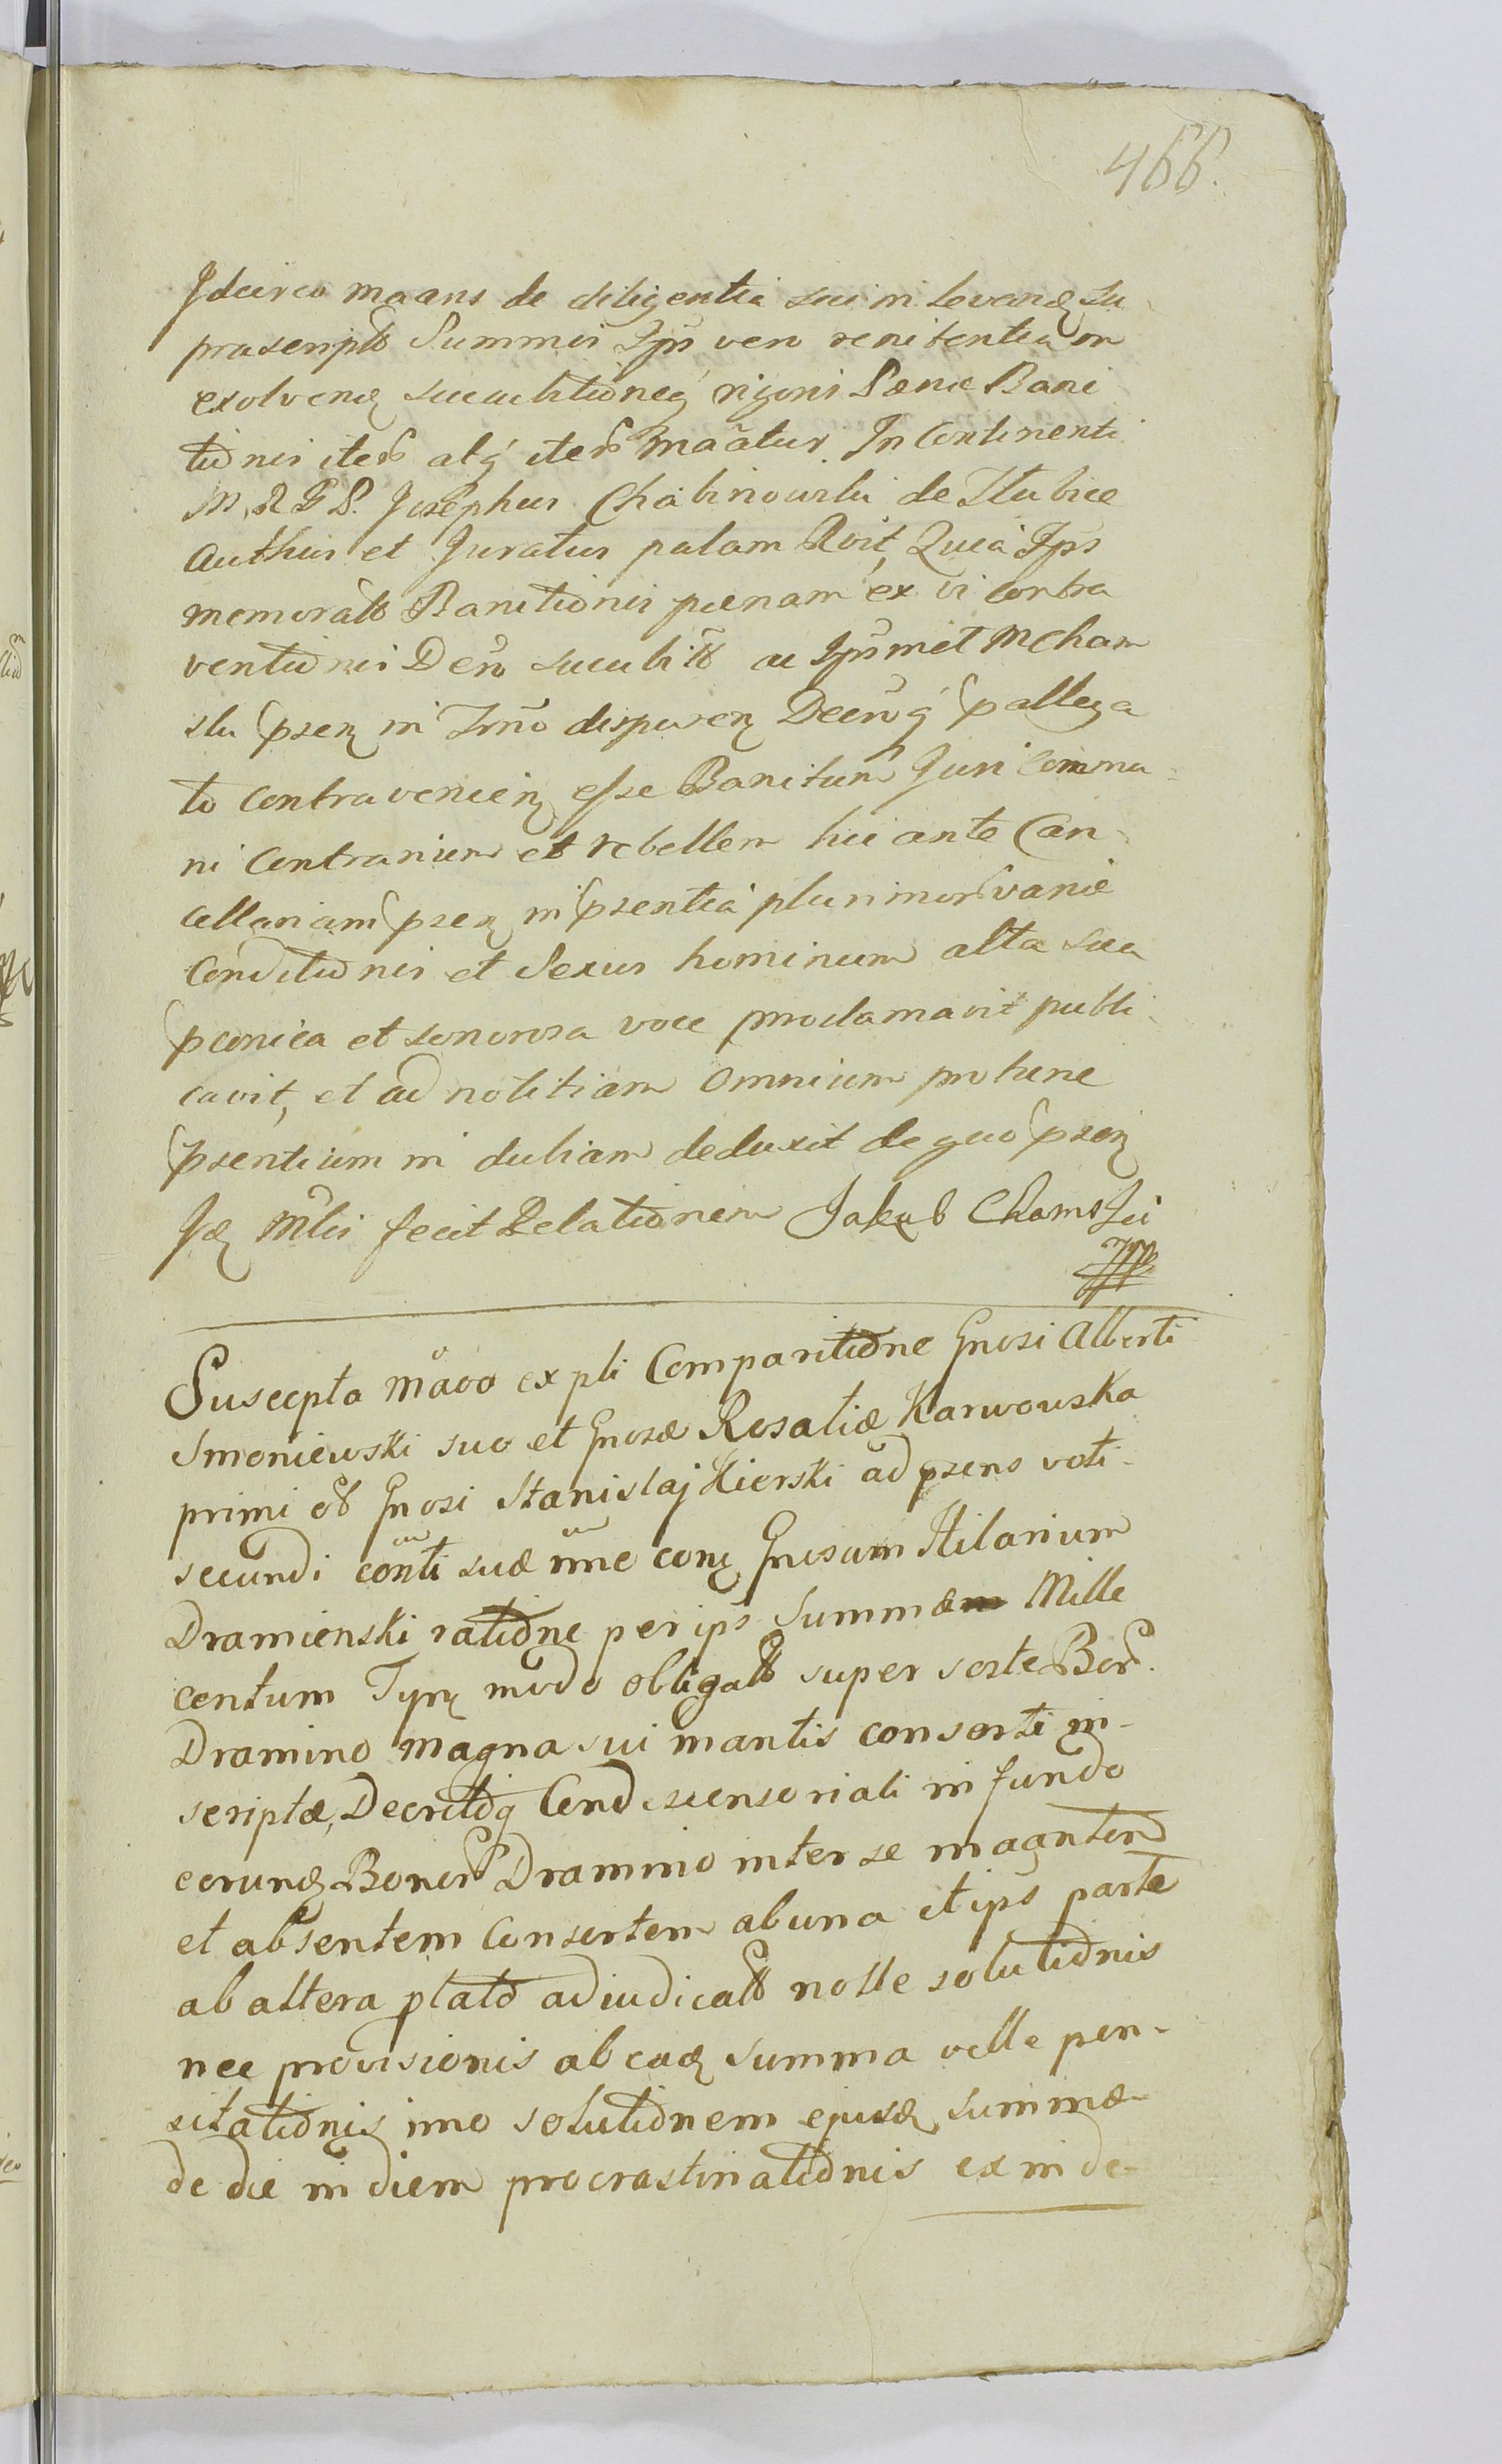 466.
Idcirco maans de diligentia sui in levanđ su
prascriptt Summis Ips vero renitentia in
exolvenđ sucubitioneq rigoris Pænæ Bani
tionis iterb atq iterb maatur. In Continenti
M. R. G P. Josephus Chabinowski de Stubice
Authus et Juratus palam Roit, Quia Ips
memoratt Banitionis pænam ex vi Contra
ventionis Dero sucubitt ac Ipsmet M Cham
ski psen in Trno disparen Decroq p allega
to Contravenien esse Banitum Juri Commu-
ni Contrarium et rebellem hic ante Can-
cellariam psen in psentia plurimor variæ
Conditionis et Sexus hominum alta sua
pconica et sonorosa voce proclamavit publi-
cavit, et ad notitiam omnium pro tunc
psentium in dubiam deduxit de quo psen
Id Mlis fecit Relationem Jakub Chamski
mpp
Suscepta maoo ex pli Comparitione Gnosi Alberti
Smoniewski suo et Gnosæ Rosaliæ Karwowska
primi et Gnosi Stanislaj Kierski ad psens voti-
secundi conti suæ nne conz Gnosum Hilarium
Dramienski ratione per ips Summæ Mille
centum Tynz modo obligatt super sorte Bor.
Dramino magna sui mantis consorti in-
scriptæ, Decretoq Condescensoriali in fundo
eorunđ Bonor Dramino inter se magnten
et absentem Consortem ab una et ips parte
ab altera plato adiudicatt nolle solutionis
nec provisionis ab eađ summa velle pen-
sitationis imo solutionem ejusđ summæ
de die in diem procrastinationis exinde-